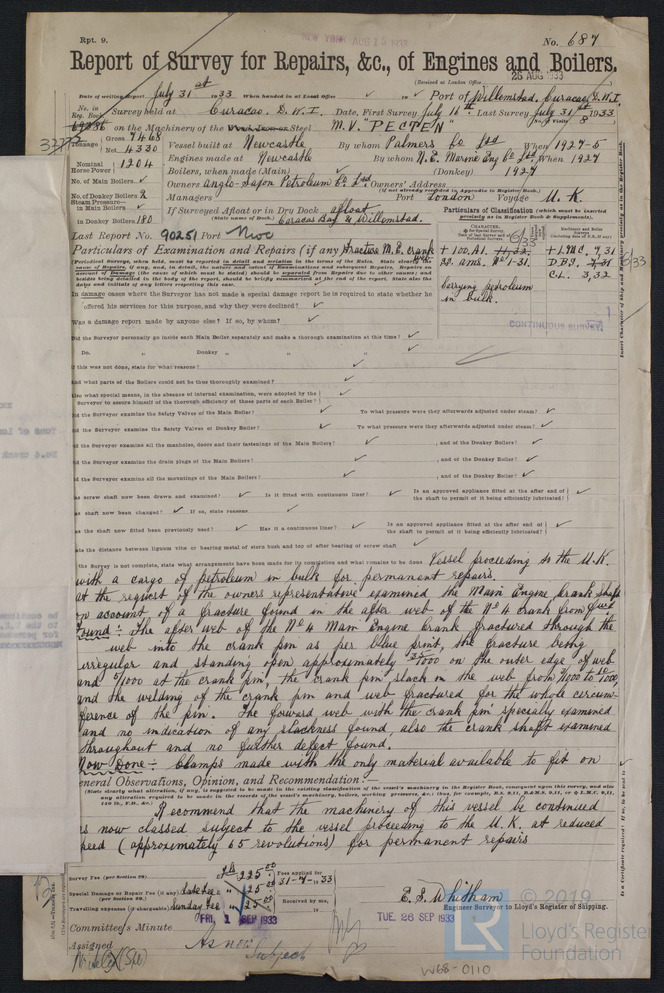 Rpt. 9.
NEW YORK AUG 15 1933
No. 687
Report of Survey for Repairs, &c., of Engines and Boilers.
(Received at London Office
25 AUG 1933
Date of writing Report July 31st 1933 When handed in at Local Office Port of Willemstad, Curacao, D.W.I.
No. in Reg. Book. Survey held at Curacao. D.W.I. Date, First Survey July 16th Last Survey July 31st 1933
on the Machinery of the Steel M.V. "PECTEN" (No. of Visits 8
Tonnage Gross 7468
Net 4330
Vessel built at Newcastle By whom Palmers Co Ltd When 1927-5
Engines made at Newcastle By whom N.E. Marine Eng Co Ltd When 1927
Nominal Horse Power 1204
Boilers, when made (Main) (Donkey) 1927
No. of Main Boilers
Owners Anglo-Saxon Petroleum Co Ltd Owners' Address
(if not already recorded in Appendix to Register Book.)
No. of Donkey Boilers 2
Managers Port London Voyage U.K.
Steam Pressure in Main Boilers
in Donkey Boilers 180
If Surveyed Afloat or in Dry Dock afloat
(State name of Dock.) Caracas Bay & Willemstad.
Particulars of Classification (which must be inserted
Last Report No. 90251 Port Nwc
Particulars of Examination and Repairs (if any) fracture M.E. crank
+ 100.A1.
+ LMC. 7,31
D.B.S.
CL. 3,32
carrying petroleum in bulk.
CONTINUOUS SURVEY
In damage cases where the Surveyor has not made a special damage report he is required to state whether he
offered his services for this purpose, and why they were declined?
Was a damage report made by anyone else? If so, by whom?
Did the Surveyor personally go inside each Main Boiler separately and make a thorough examination at this time?
Do. " Donkey " " "
If this was not done, state for what reasons?
And what parts of the Boilers could not be thoroughly examined?
Also what special means, in the absence of internal examination, were adopted by the
Surveyor to assure himself of the thorough efficiency of those parts of each Boiler?
Did the Surveyor examine the Safety Valves of the Main Boiler? To what pressure were they afterwards adjusted under steam?
Did the Surveyor examine the Safety Valves of Donkey Boiler? To what pressure were they afterwards adjusted under steam?
Did the Surveyor examine all the manholes, doors and their fastenings of the Main Boilers? , and of the Donkey Boilers?
Did the Surveyor examine the drain plugs of the Main Boilers? , and of the Donkey Boilers?
Did the Surveyor examine all the mountings of the Main Boilers? , and of the Donkey Boilers?
screw shaft now been drawn and examined? Is it fitted with continuous liner? Is an approved appliance fitted at the after end of
the shaft to permit of it being efficiently lubricated?
shaft now been changed? If so, state reasons
the shaft now fitted been previously used? Has it a continuous liner? Is an approved appliance fitted at the after end of
the shaft to permit of it being efficiently lubricated?
the distance between lignum vitæ or bearing metal of stern bush and top of after bearing of screw shaft
the Survey is not complete, state what arrangements have been made for its completion and what remains to be done Vessel proceeding to the U.K.
with a cargo of petroleum in bulk for permanent repairs.
at the request of the owners representative examined the Main Engine Crank Shaft
on account of a fracture found in the after web of the No 4 crank from fwd
Found :- The after web of the No 4 Main Engine Crank fractured through the
web into the crank pin as per blue print, the fracture being
irregular and standing open approximately 35/1000 on the outer edge of web
and 5/1000 at the crank pin, the crank pin slack on the web from
and the welding of the crank pin and web fractured for the whole circum-
ference of the pin. The forward web with the crank pin specially examined
and no indication of any slackness found, also the crank shaft examined
throughout and no further defect found.
Now Done :- Clamps made with the only material available to fit on
General Observations, Opinion, and Recommendation:
I recommend that the machinery of this vessel be continued
as now classed subject to the vessel proceeding to the U.K. at reduced
speed (approximately 65 revolutions) for permanent repairs
Survey Fee (per Section 29) 225.00 Fees applied for
31-7-1933
Special Damage or Repair Fee (if any) Late Fee " 25.00
(per Section 29).
Travelling expenses (if chargeable) Sunday Fee " 25.00 Received by me,
E.S. Whitham
Engineer Surveyor to Lloyd's Register of Shipping.
FRI. 1 SEP 1933
TUE. 26 SEP 1933
Committee's Minute
Assigned As now Subject
© 2019
LR Lloyd's Register Foundation
W68-0110